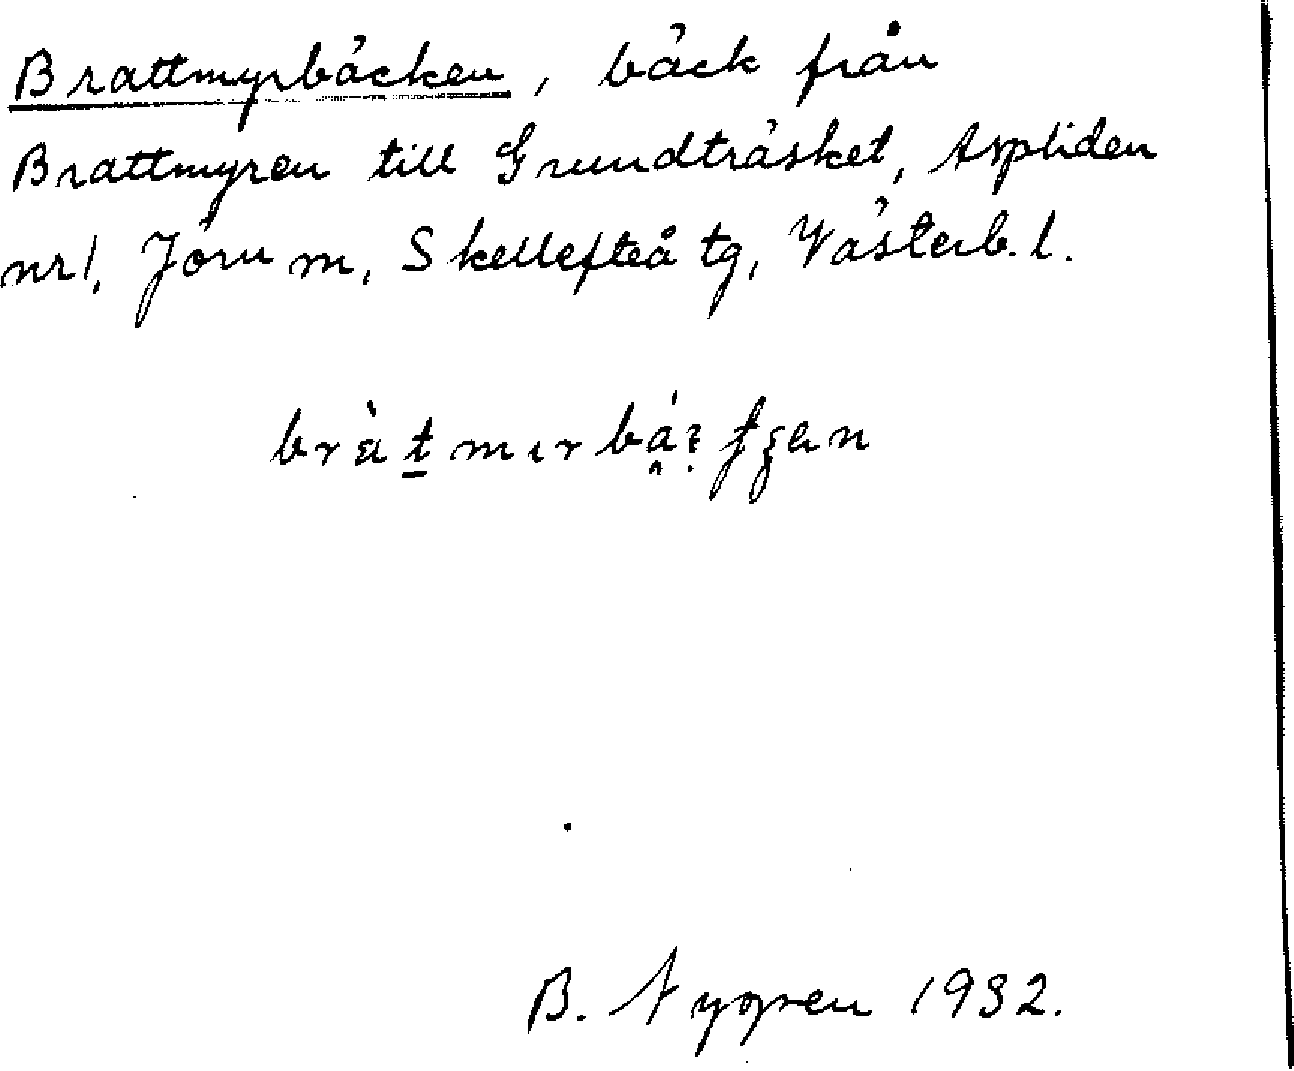 Brattmyrbäcken, bäck från
Brattmyren till Grundträsket, Aspliden
nr 1, Jörn m, Skellefteå tg, Västerb. l.
B. Nygren 1932.